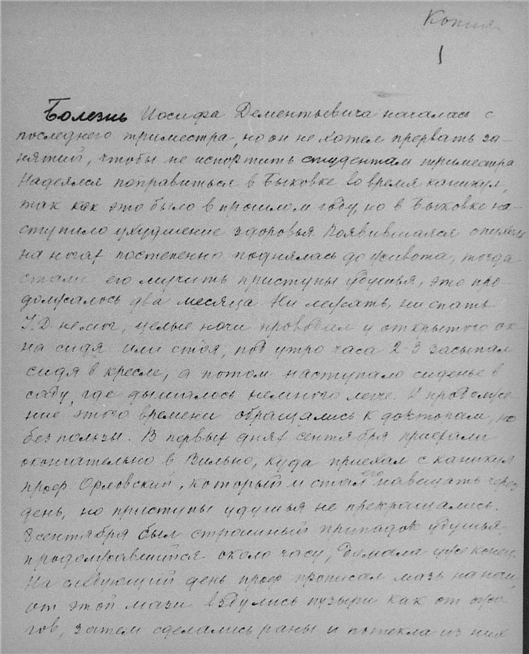 Копия
1
Болезнь Иосифа Дементьевича началась с
последнего триместра, но он не хотел прервать за-
нятий, чтобы не испортить студентам триместра
Надеялся поправиться в Быковке во время каникул,
так как это было в прошлом году, но в Быковке на-
ступило ухудшение здоровья Появившаяся опухоль
на ногах постепенно поднялась до живота, тогда
стали его мучить приступы удушья, это про-
должалось два месяца Ни лежать, ни спать
I. D. не мог, целые ночи проводил у открытого ок-
на сидя или стоя, под утро часа 2 3 засыпал
сидя в кресле, а потом наступало сиденье в
саду, где дышалось немного легче. В продолже-
ние этого времени обращались к докторам, но
без пользы. В первых днях сентября приехали
окончательно в Вильно, куда приехал с каникул
проф Орловский, который и стал навещать через
день, но приступы удушья не прекращались.
8 сентября был страшный припадок удушья
продолжавшийся около часу, думала уже конец.
На следующий день проф прописал мазь на ноги,
от этой мази вздулись пузыри как от ожо-
гов, затем сделались раны и потекла из них